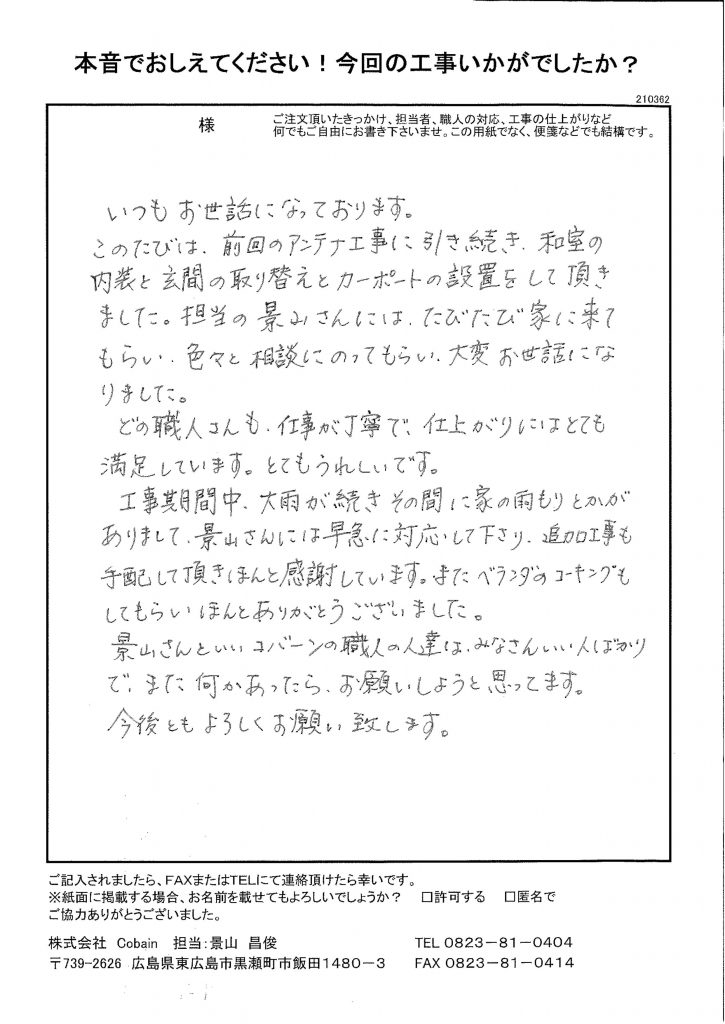 本音でおしえてください！今回の工事いかがでしたか？
210362
様
ご注文頂いたきっかけ、担当者、職人の対応、工事の仕上がりなど
何でもご自由にお書き下さいませ。この用紙でなく、便箋などでも結構です。
いつもお世話になっております。
このたびは、前回のアンテナ工事に引き続き、和室の
内装と玄関の取り替えとカーポートの設置をして頂き
ました。担当の景山さんには、たびたび家に来て
もらい、色々と相談にのってもらい、大変お世話にな
りました。
どの職人さんも、仕事が丁寧で、仕上がりにはとても
満足しています。とてもうれしいです。
工事期間中、大雨が続きその間に家の雨もりとかが
ありまして、景山さんには早急に対応して下さり、追加工事も
手配して頂きほんと感謝しています。またベランダのコーキングも
してもらいほんとありがとうございました。
景山さんといいコバーンの職人の人達は、みなさんいい人ばかり
で、また何かあったら、お願いしようと思ってます。
今後ともよろしくお願い致します。
ご記入されましたら、FAXまたはTELにて連絡頂けたら幸いです。
※紙面に掲載する場合、お名前を載せてもよろしいでしょうか？　□許可する　□匿名で
ご協力ありがとうございました。
株式会社　Cobain　担当:景山　昌俊　TEL 0823－81－0404
〒739-2626　広島県東広島市黒瀬町市飯田1480－3　FAX 0823－81－0414